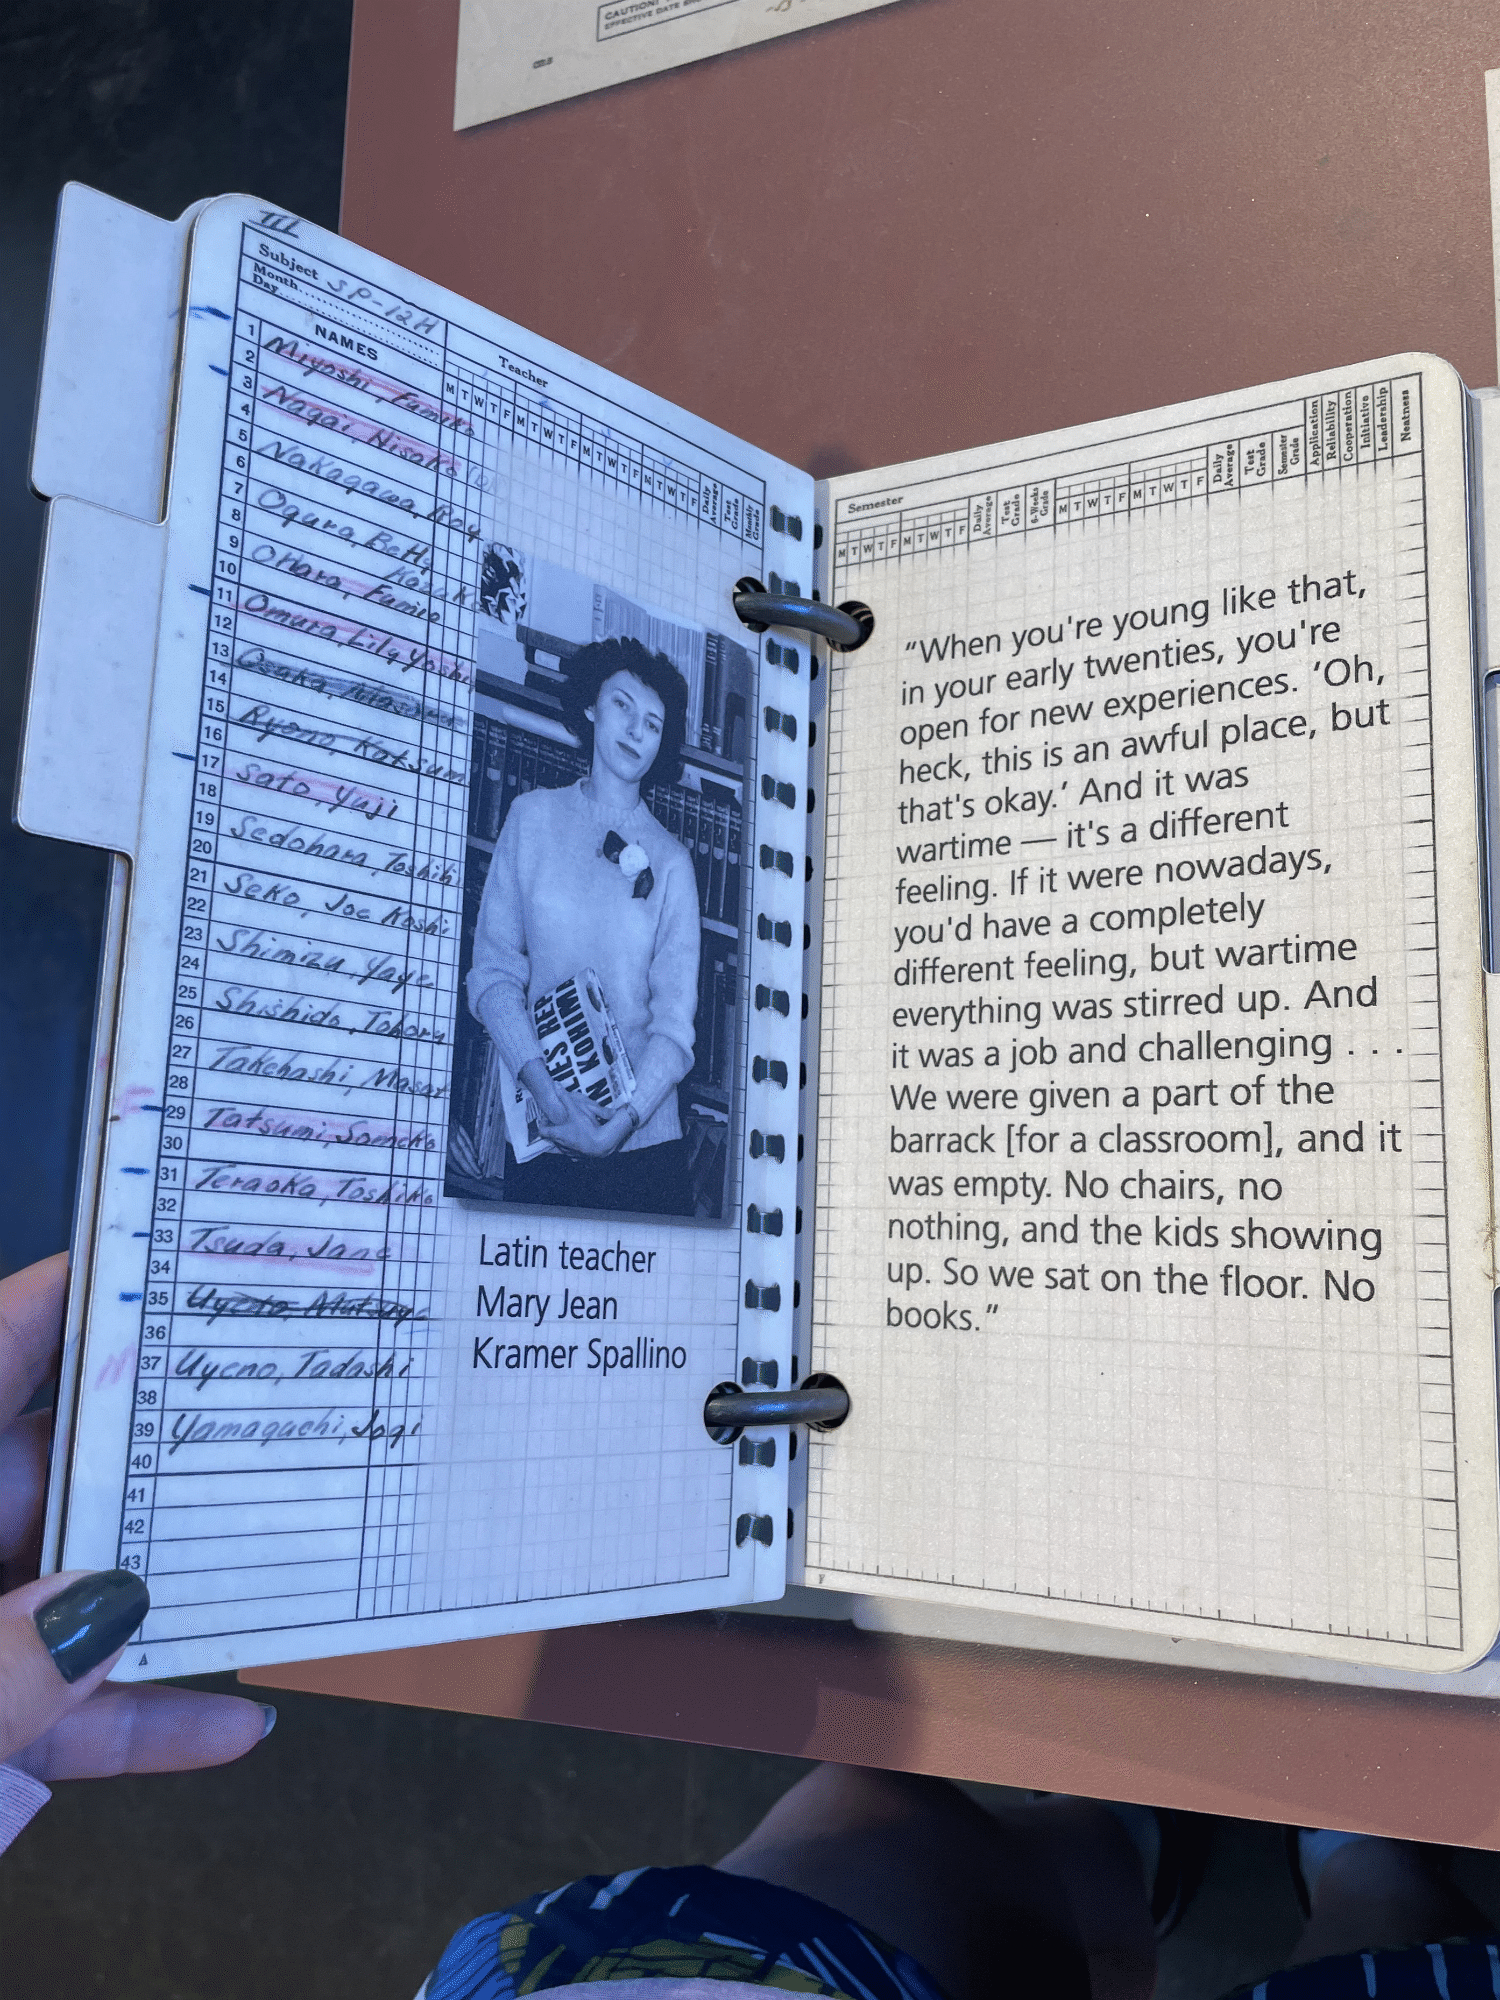 CAUTION!
EFFECTIVE DATE
III
Subject SP-12H
Month
Day
Teacher
NAMES
M T W T F M T W T F M T W T F M T W T F Daily Average Test Grade Monthly Grade
1 Miyoshi, Fumiko
2
3 Nagai, Hisako
4
5 Nakagawa, Roy
6
7 Ogura, Betty
8 Kazuko
9 OHara, Fumico
10
11 Omura, Lily Yoshi
12
13 Osaka,
14
15 Ryono, Katsum
16
17 Sato, Yuji
18
19 Sedohara, Toshihi
20
21 Seko, Joe Koshi
22
23 Shimizu, Yaye
24
25 Shishido, Tohoru
26
27 Takehashi, Masat
28
29 Tatsumi, Someko
30
31 Teraoka, Toshiko
32
33 Tsuda, Jane
34
35 Uyeno, Mutsuye
36
37 Uyeno, Tadashi
38
39 Yamaguchi, Jogi
40
41
42
43
A
LIFE'S REP
IN KOHIMA
Latin teacher
Mary Jean
Kramer Spallino
Semester
M T W T F M T W T F Daily Average Test Grade 6-Weeks Grade M T W T F M T W T F Daily Average Test Grade Semester Grade Application Reliability Cooperation Initiative Leadership Neatness
“When you're young like that,
in your early twenties, you're
open for new experiences. ‘Oh,
heck, this is an awful place, but
that's okay.’ And it was
wartime — it's a different
feeling. If it were nowadays,
you'd have a completely
different feeling, but wartime
everything was stirred up. And
it was a job and challenging . . .
We were given a part of the
barrack [for a classroom], and it
was empty. No chairs, no
nothing, and the kids showing
up. So we sat on the floor. No
books.”